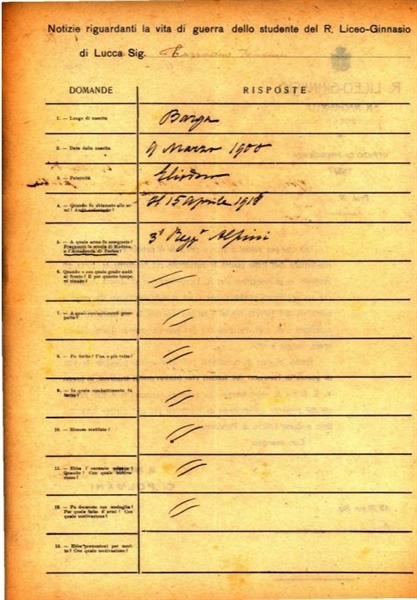 Notizie riguardanti la vita di guerra dello studente del R. Liceo-Ginnasio
di Lucca Sig.
DOMANDE RISPOSTE
1. — Luogo di nascita Barga
2. — Data della nascita 9 Marzo 1900
3. — Paternità Eliodoro
4. — Quando fu chiamato alle armi? Al 15 Aprile 1918
5. — A quale arma fu assegnato? 3° Regg. Alpini
Frequentò la scuola di Modena,
o l'Accademia di Torino?
6. Quando e con quale grado andò
al fronte? E per quanto tempo
rimase?
7. — A quali combattimenti prese
parte?
8. — Fu ferito? Una o più volte?
9. — In quale combattimento fu
ferito?
10. — Rimase mutilato?
11. — Ebbe l'encomio
Quando? Con quale motivazione?
12. — Fu decorato con medaglia?
Per quale fatto d'armi? Con
quale motivazione?
13. — Ebbe promozioni per merito? Con quale motivazione?